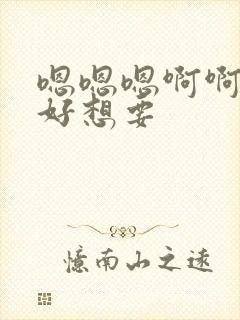 嗯嗯嗯啊啊
好想要
憶南山之遠